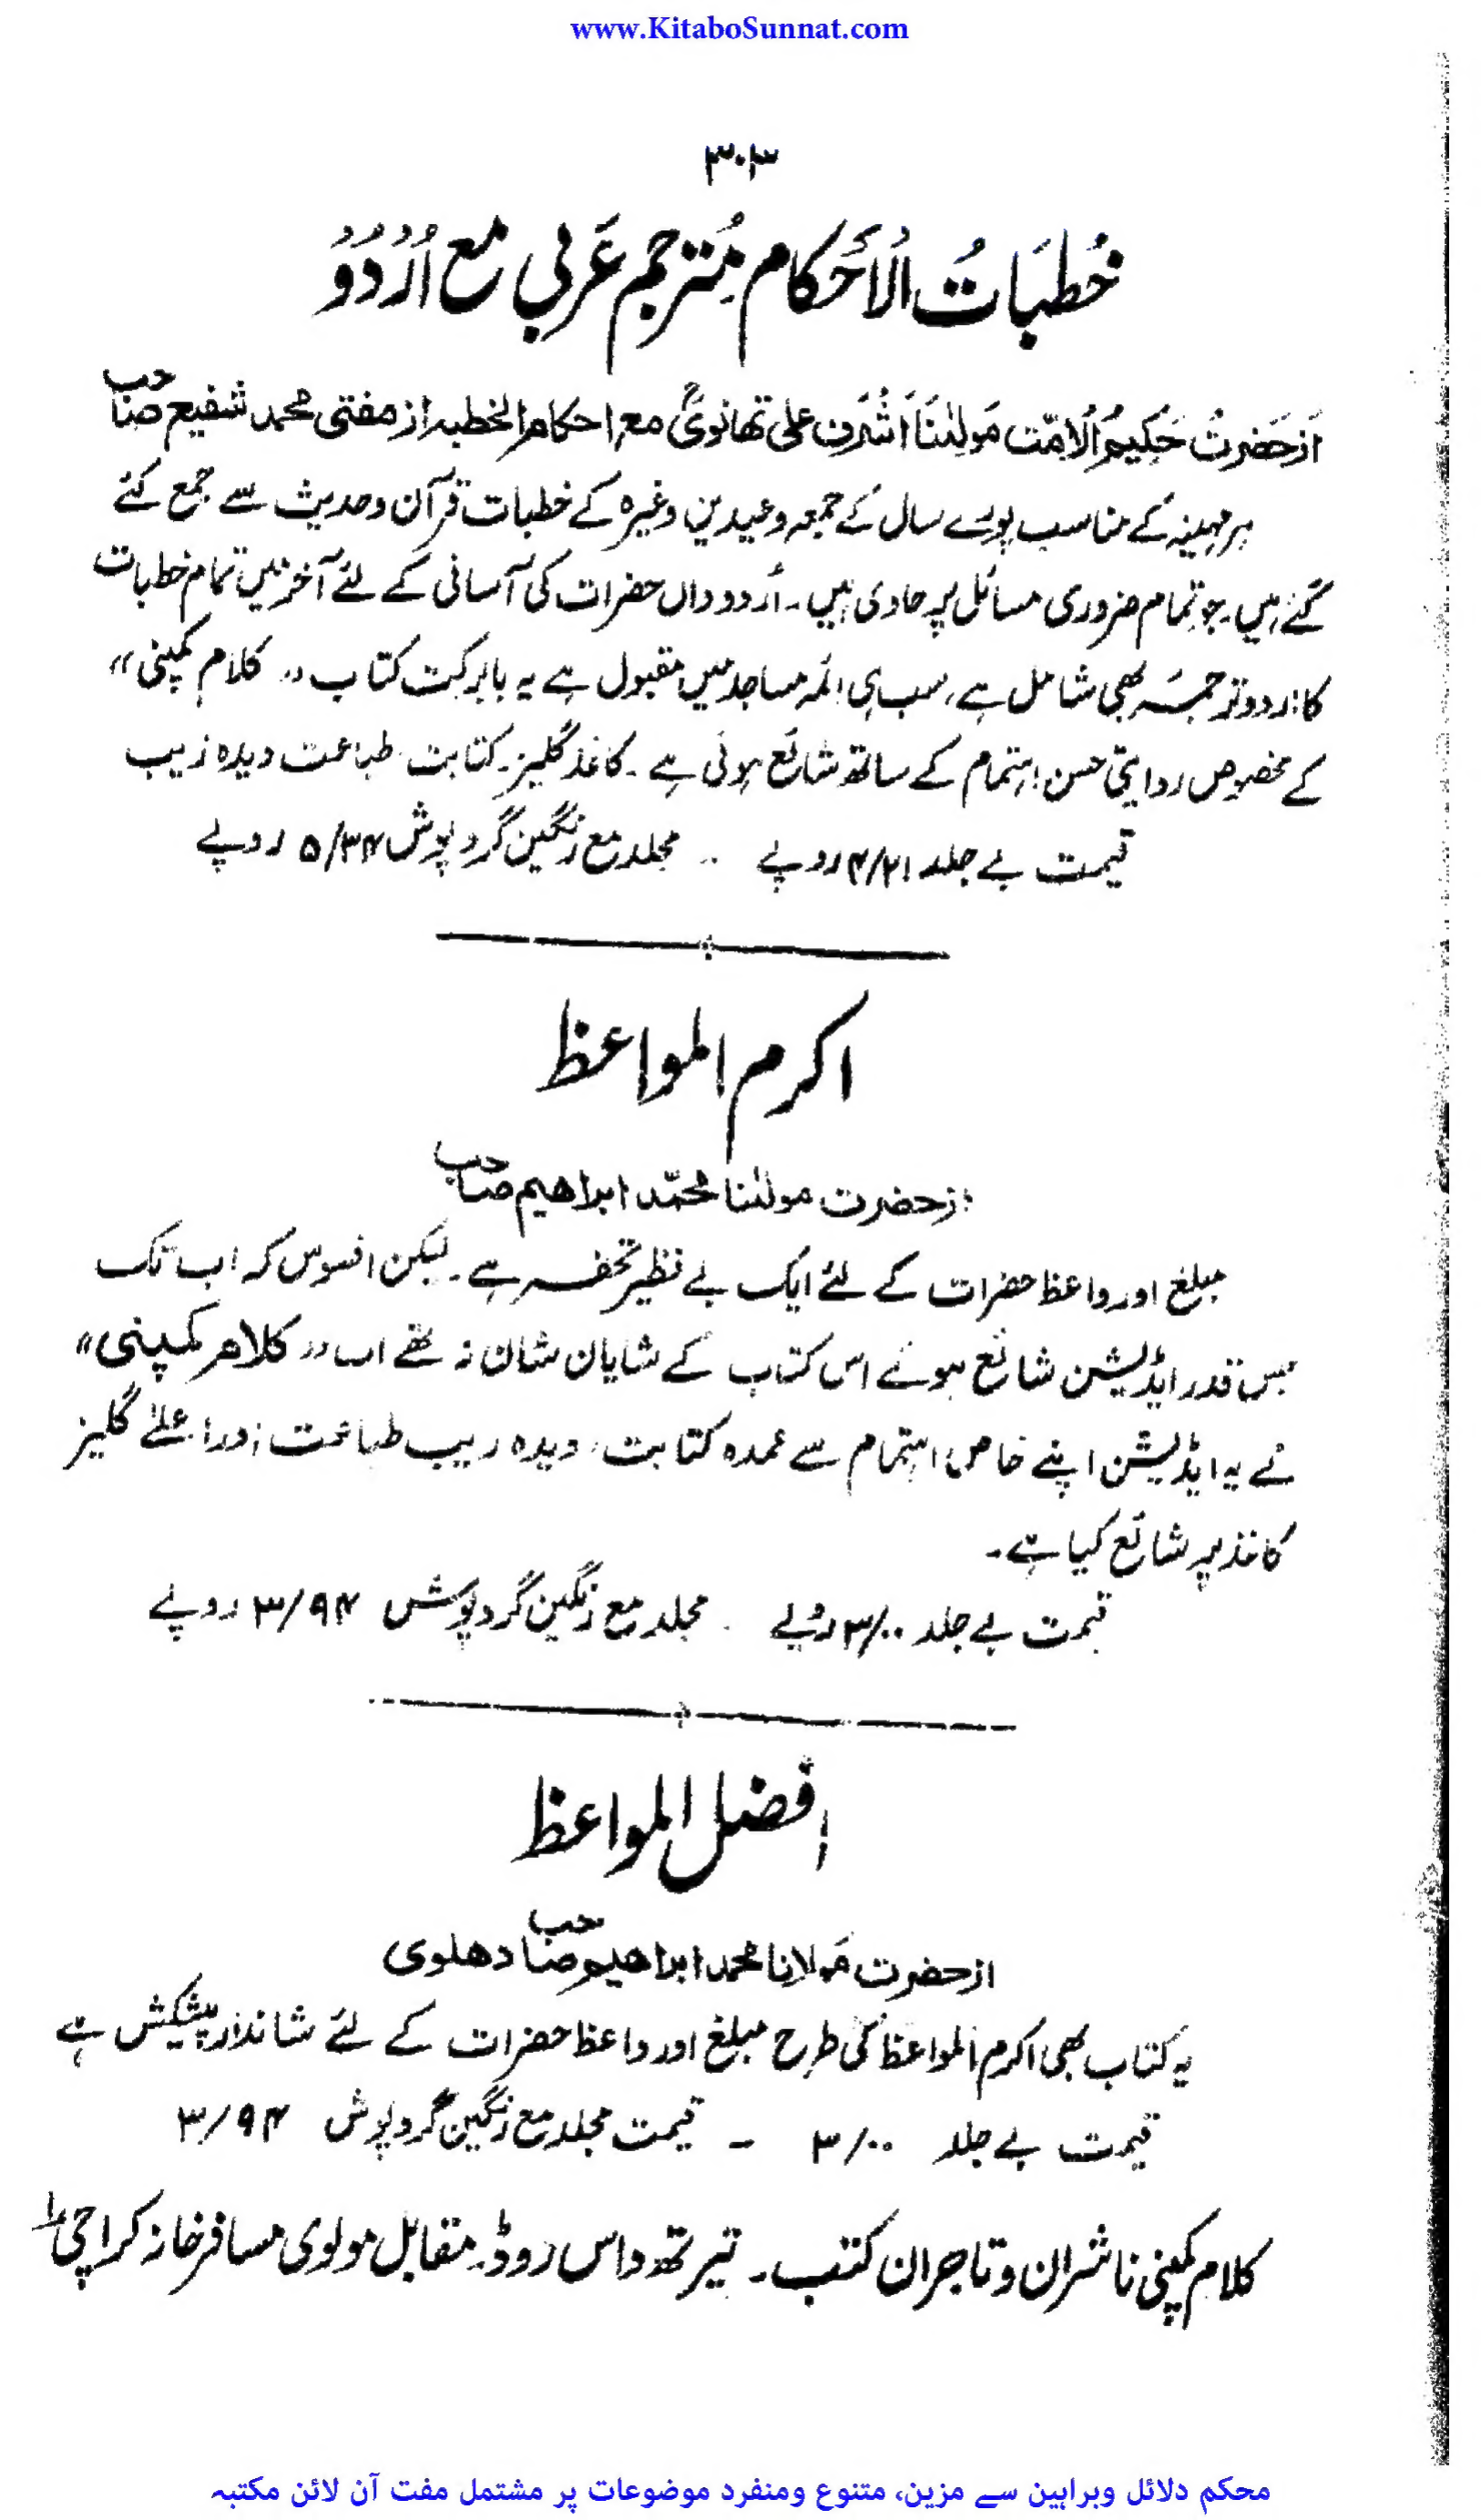 www.KitaboSunnat.com
۳۰۳
خُطبَاتُ الْاَحْکَام مُترجم عَربی مع اُرْدُوْ
اَز حَضرتْ حَکِیمُ الْاُمّت مَولٰنَا اَشْرَف علی تھانویؒ مع احکام الخطبہ از مفتی محمد شفیع صاحب
ہر مہینہ کے مناسب پورے سال کے جمعہ و عیدین وغیرہ کے خطبات قرآن و حدیث سے جمع کئے
گئے ہیں۔ جو تمام ضروری مسائل پر حاوی ہیں۔ اُردو داں حضرات کی آسانی کے لئے آخر میں تمام خطبات
کا اردو ترجمہ بھی شامل ہے، سب ہی ائمہ مساجد میں مقبول ہے یہ بابرکت کتاب ”کلام کمپنی“
کے مخصوص روایتی حسن اہتمام کے ساتھ شائع ہوئی ہے۔ کاغذ گلیز۔ کتابت طباعت دیدہ زیب
قیمت بے جلد ۴/۲۱ روپے .. مجلد مع رنگین گرد پوش ۵/۳۴ روپے
اکرم المواعظ
از حضرت مولٰنا محمّد ابراهیم صاحب
مبلغ اور واعظ حضرات کے لئے ایک بے نظیر تحفہ ہے۔ لیکن افسوس کہ اب تک
جس قدر ایڈیشن شائع ہوئے اس کتاب کے شایان شان نہ تھے اب ”کلام کمپنی“
نے یہ ایڈیشن اپنے خاص اہتمام سے عمدہ کتابت، دیدہ زیب طباعت اور اعلےٰ گلیز
کاغذ پر شائع کیا ہے۔
قیمت بے جلد ۳/۰۰ روپے . مجلد مع رنگین گرد پوش ۳/۹۴ روپے
افضل المواعظ
از حضرت مَولانا محمد ابراهیم صاحب دهلوی
یہ کتاب بھی اکرم المواعظ کی طرح مبلغ اور واعظ حضرات کے لئے شاندار پیشکش ہے
قیمت بے جلد ۳/۰۰ ــ قیمت مجلد مع رنگین گرد پوش ۳/۹۴
کلام کمپنی ناشران و تاجران کتب۔ تیرتھ داس روڈ۔ مقابل مولوی مسافر خانہ کراچی ۱
محکم دلائل وبراہین سے مزین، متنوع ومنفرد موضوعات پر مشتمل مفت آن لائن مکتبہ